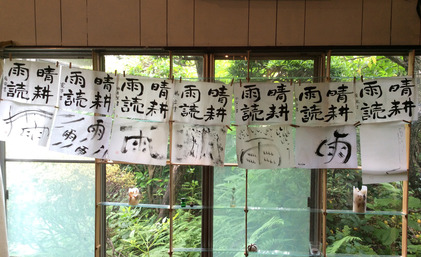 晴耕
雨読
晴耕
雨読
晴耕
雨読
晴耕
雨読
晴耕
雨読
晴耕
雨読
晴耕
雨読
雨
雨
雨